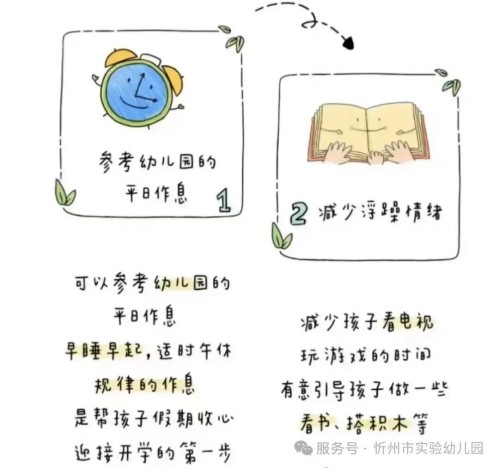 参考幼儿园的
平日作息
1
2 减少浮躁情绪
可以参考幼儿园的
平日作息
早睡早起,适时午休
规律的作息
是帮孩子假期收心
迎接开学的第一步
减少孩子看电视
玩游戏的时间
有意引导孩子做一些
看书、搭积木等
服务号·忻州市实验幼儿园